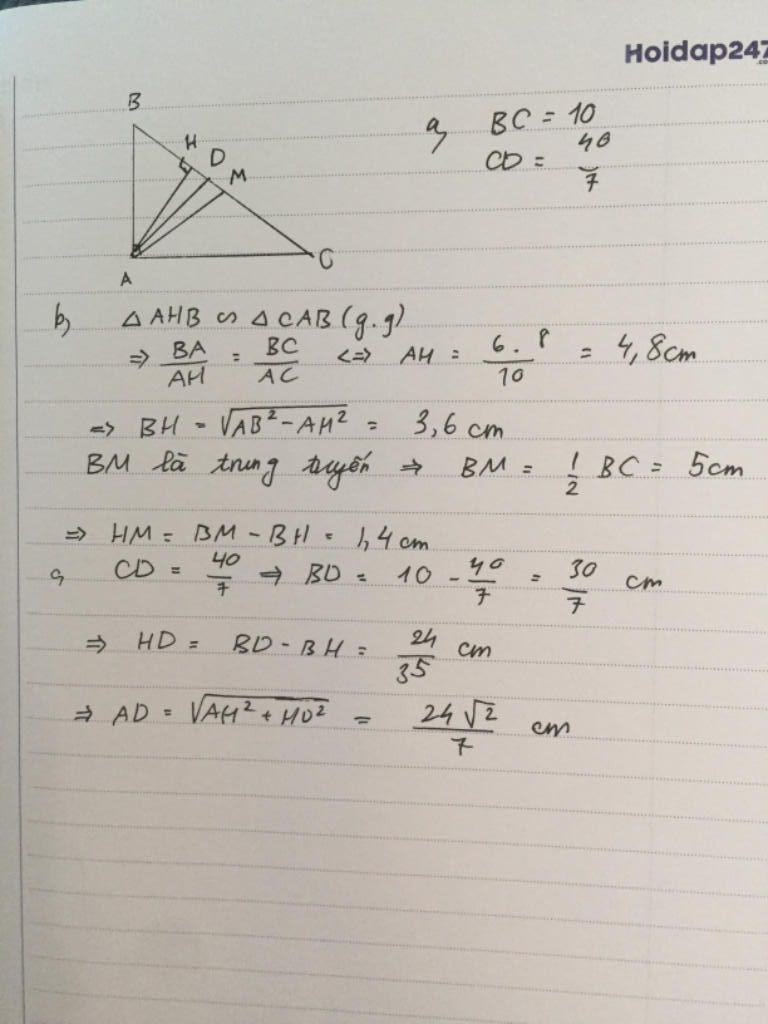 Hoidap247
.com
B
H
D
M
A
C
a, BC = 10
CD = 40/7
b, △AHB ∽ △CAB (g.g)
⇒ BA/AH = BC/AC <=> AH = 6.8/10 = 4,8cm
=> BH = √(AB² - AH²) = 3,6 cm
BM là trung tuyến ⇒ BM = 1/2 BC = 5cm
⇒ HM = BM - BH = 1,4 cm
c, CD = 40/7 ⇒ BD = 10 - 40/7 = 30/7 cm
⇒ HD = BD - BH = 24/35 cm
⇒ AD = √(AH² + HD²) = 24√2/7 cm